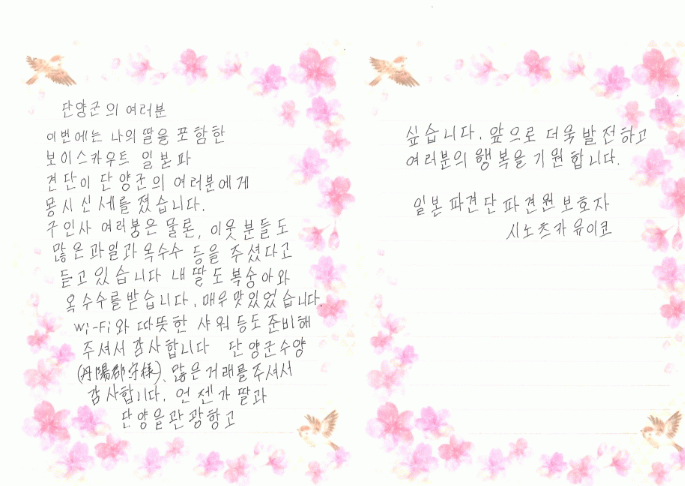 단양군의 여러분
이번에는 나의 딸을 포함한
보이스카우트 일본파
견단이 단양군의 여러분에게
몽시 신세를 졌습니다.
구인사 여러붕은 물론, 이웃 분들도
많은 과일과 옥수수 등을 주셨다고
듣고 있습니다 내 딸도 복숭아와
옥수수를 받습니다. 매우 맛있었습니다
Wi-Fi와 따뜻한 샤워 등도 준비해
주셔서 감사합니다 단양군수양
(丹陽郡守様), 많은 거래를 주셔서
감사합니다. 언젠가 딸과
단양을 관광항고
싶습니다. 앞으로 더욱 발전하고
여러분의 행복을 기원합니다.
일본 파견단 파견원 보호자
시노츠카 유이코